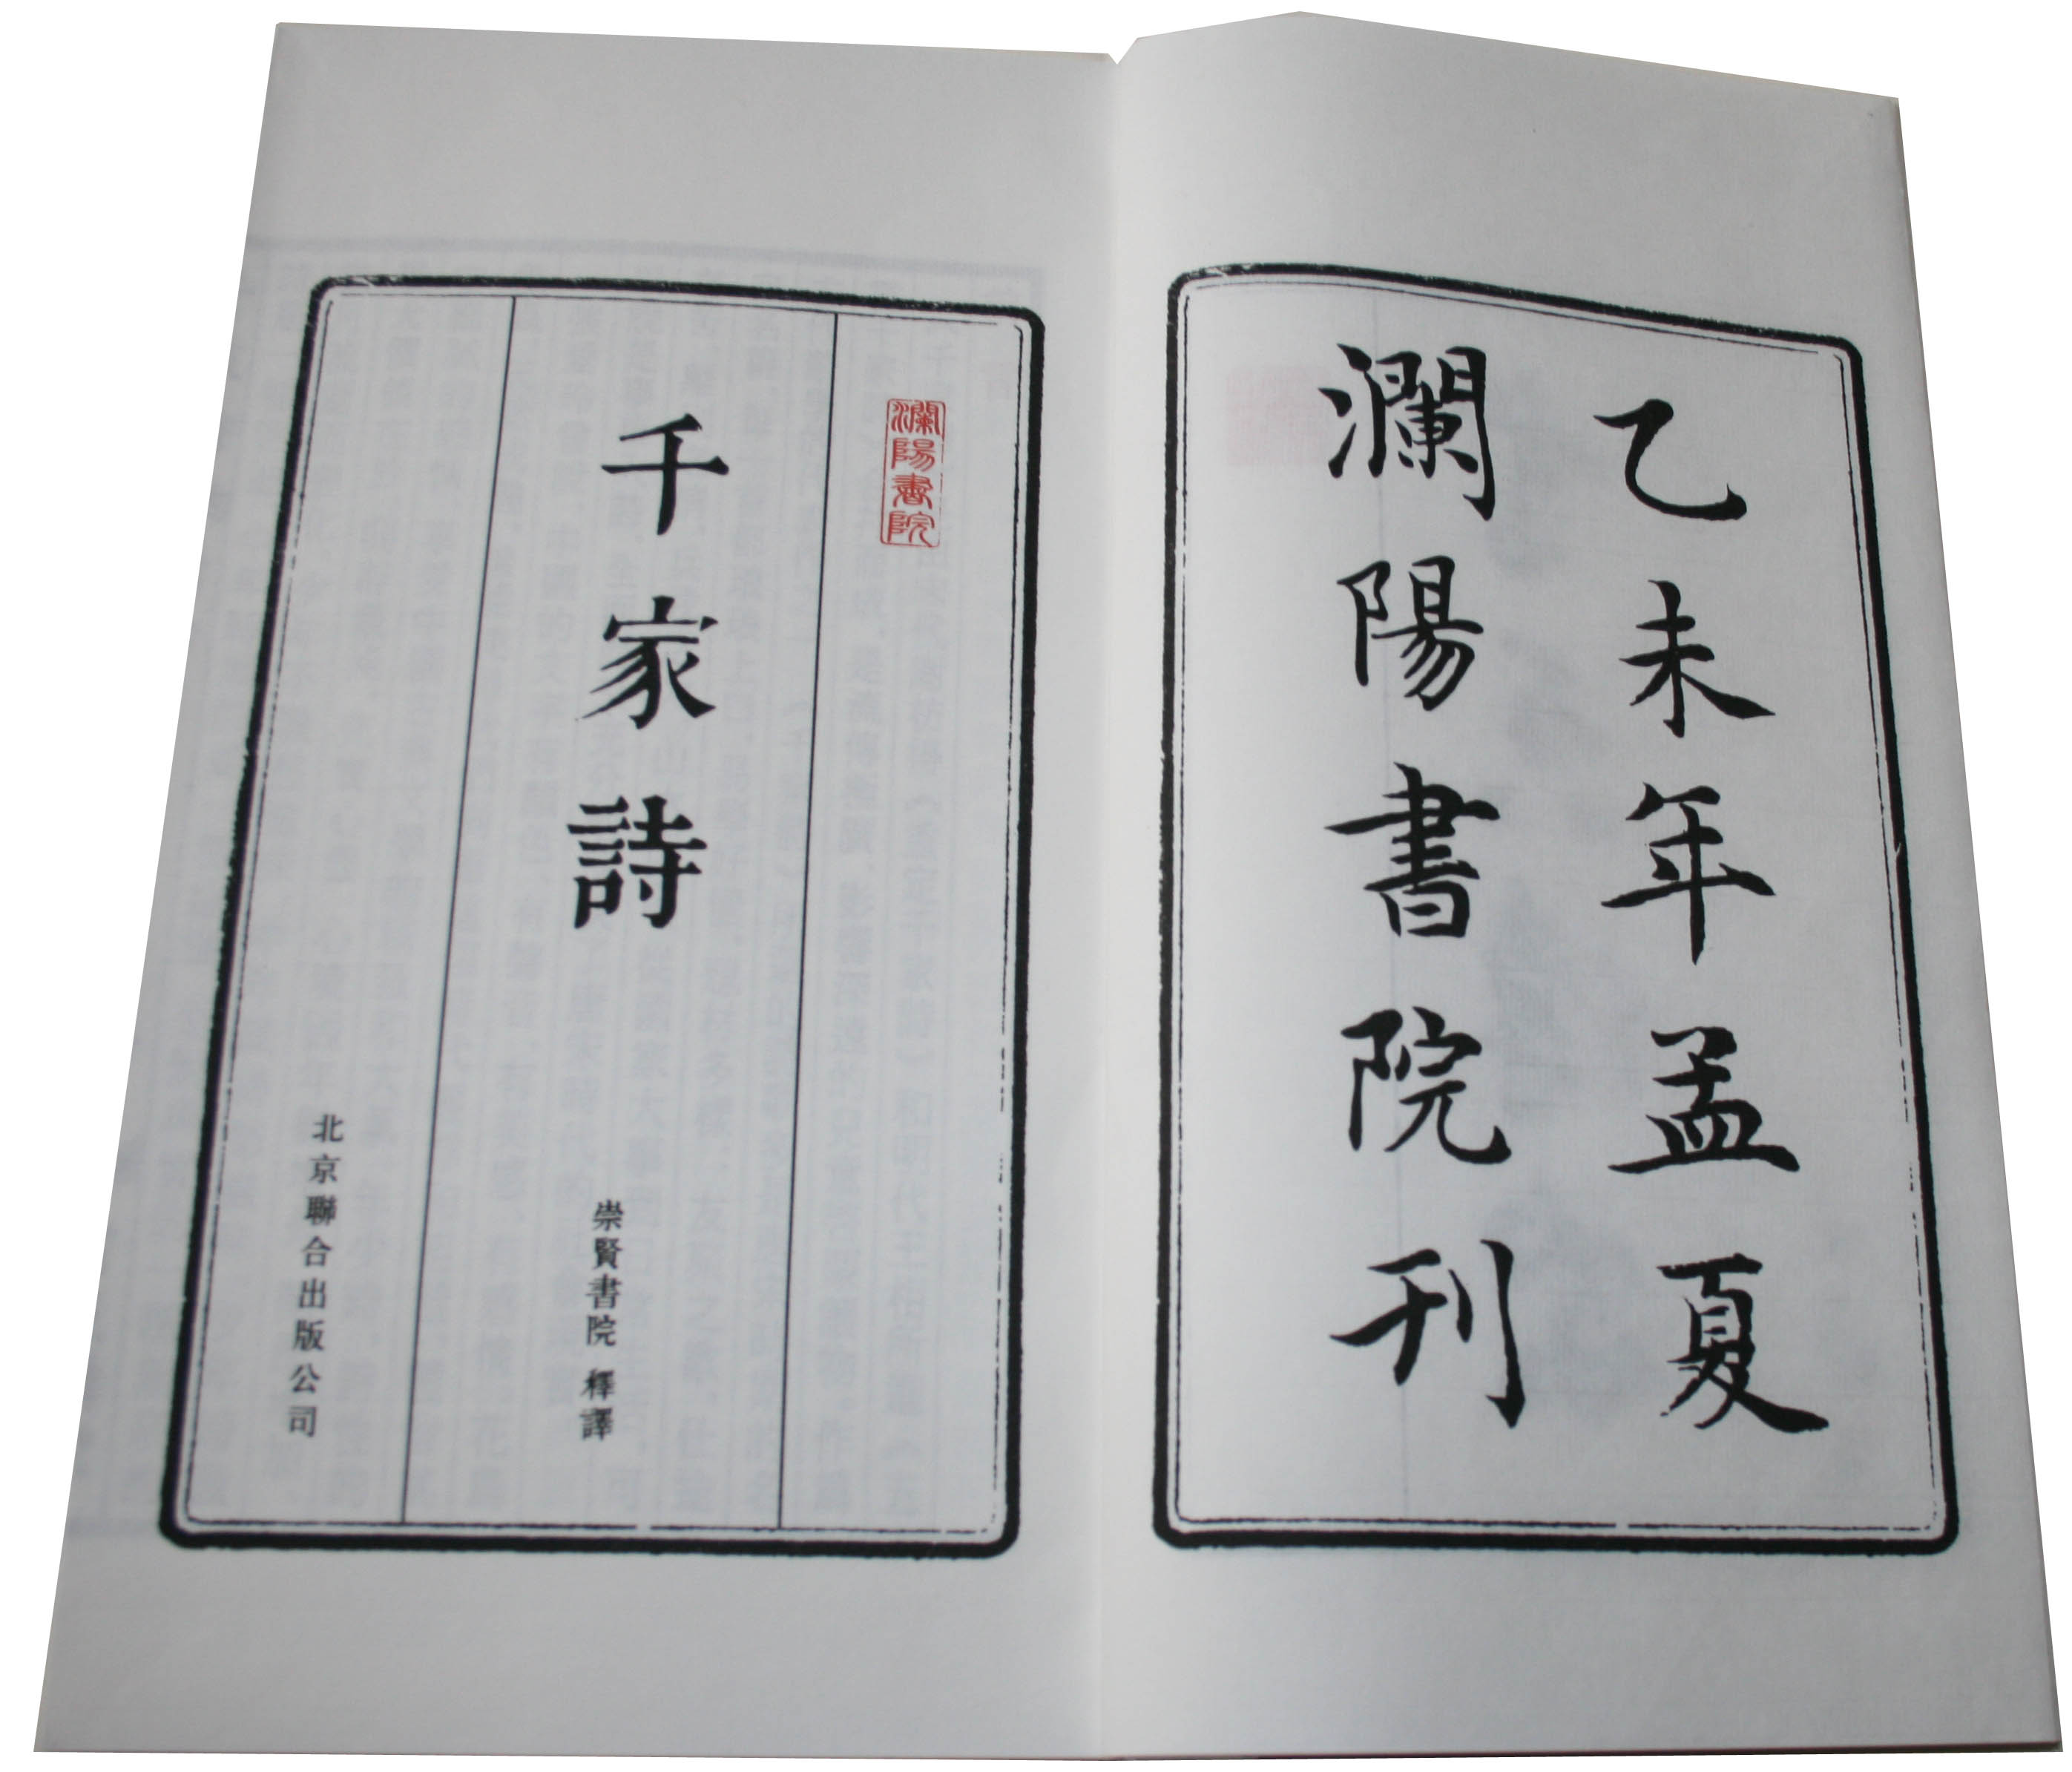 乙未年孟夏
瀾陽書院刊
瀾陽書院
千家詩
崇賢書院 釋譯
北京聯合出版公司